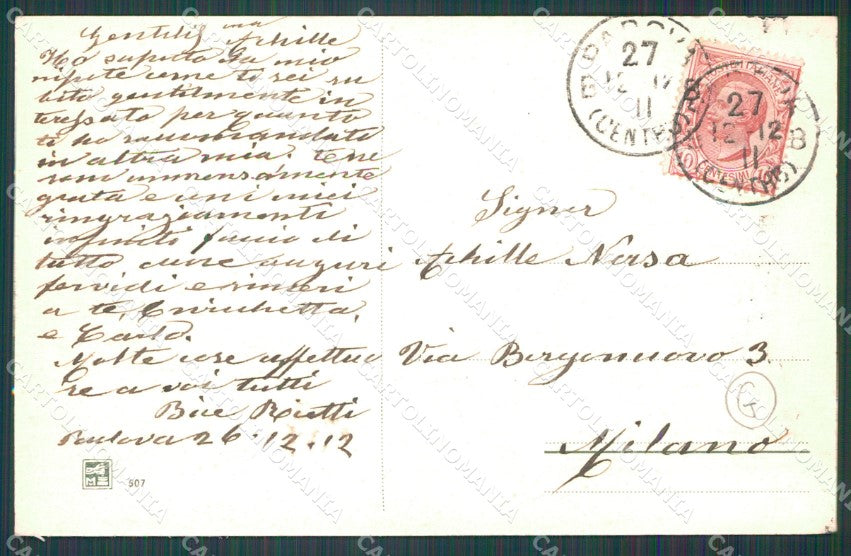 Gentiliss ma Achille
Ho saputo da mio
nipote come ti sei su
bito gentilmente in
teressato per quanto
ti ho raccomandato
in altra mia. te ne
sono immensamente
grata e coi miei
ringraziamenti
infiniti faccio di
tutto cuore auguri
fervidi e sinceri
a te, Enrichetta,
e Carlo.
Molte cose affettuo
se a voi tutti
Bice Rietti
Padova 26.12.12
507
Signor
Achille Norsa
Via Borgonuovo 3
Milano
PADOVA
27
12 12
11
(CENTRO)
27
12 12
11
(CENTRO)
B
CARTOLINOMANIA